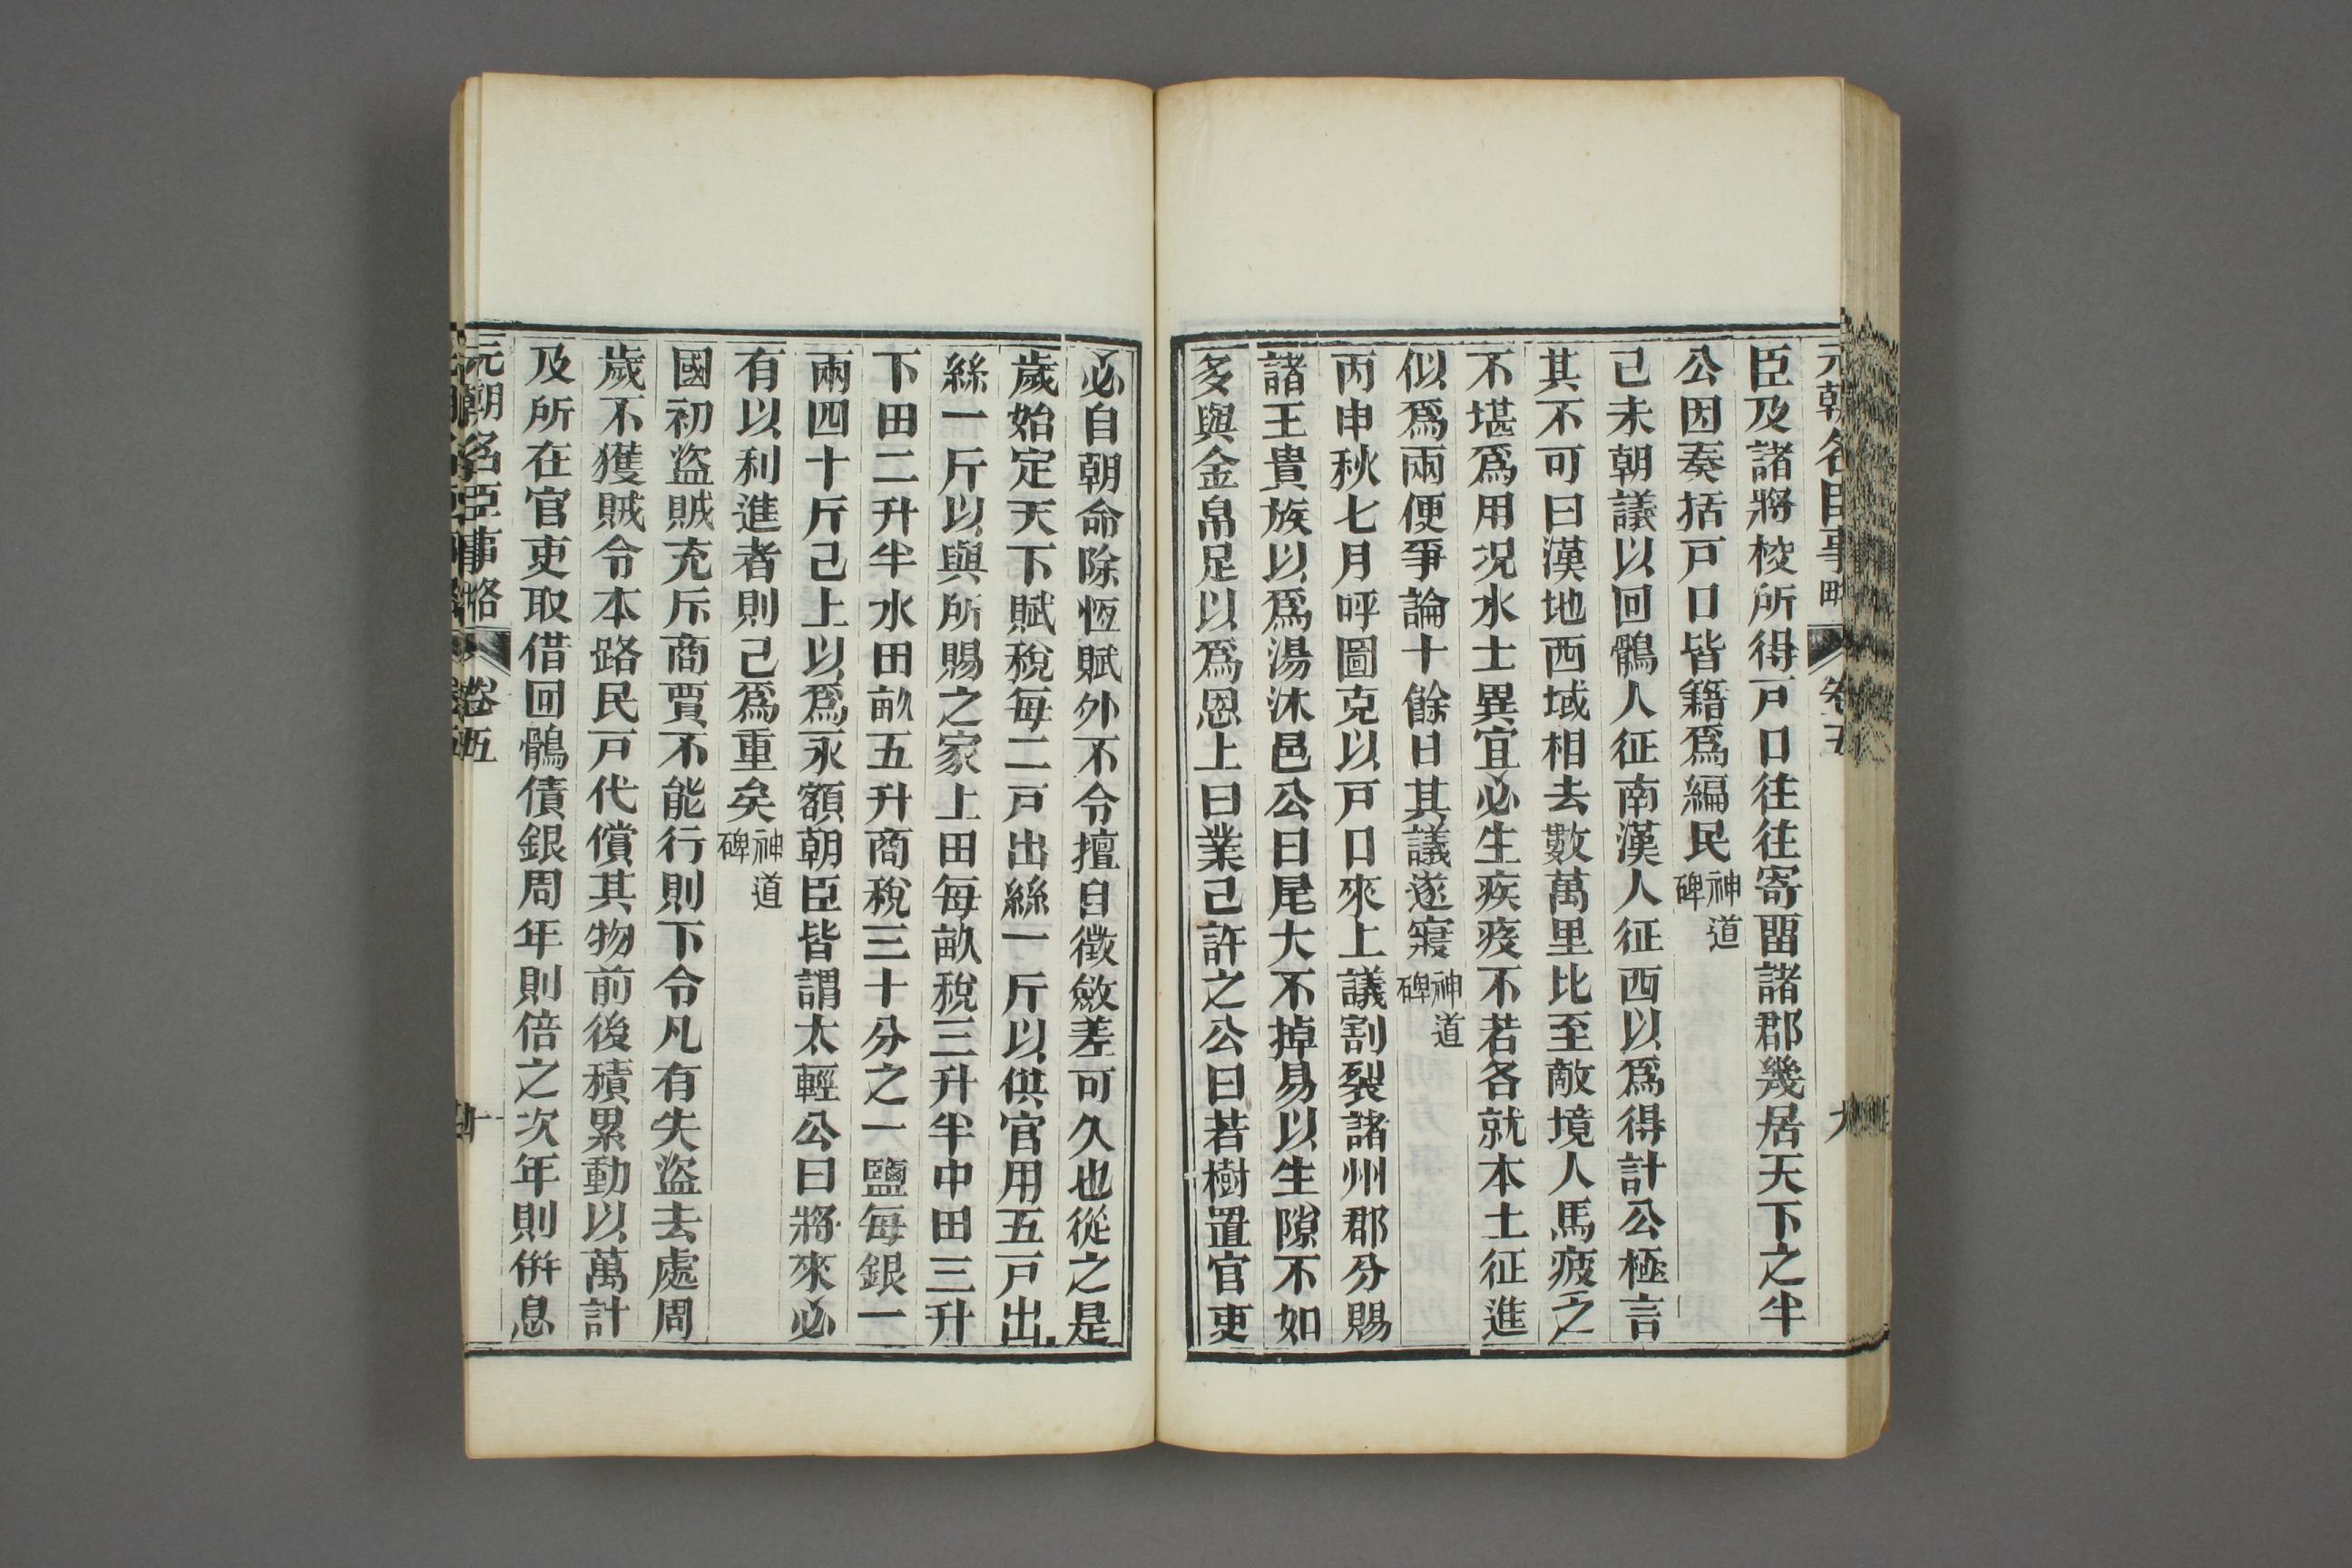 元朝名臣事略 卷五 九
臣及諸將校所得戸口往往寄畱諸郡幾居天下之半
公因奏括戸口皆籍爲編民神道碑
己未朝議以回鶻人征南漢人征西以爲得計公極言
其不可曰漢地西域相去數萬里比至敵境人馬疲乏
不堪爲用况水土異宜必生疾疫不若各就本土征進
似爲兩便爭論十餘日其議遂寢神道碑
丙申秋七月呼圖克以戸口來上議割裂諸州郡分賜
諸王貴族以爲湯沐邑公曰尾大不掉易以生隙不如
多與金帛足以爲恩上曰業己許之公曰若樹置官吏
必自朝命除恆賦外不令擅自徵斂差可久也從之是
歲始定天下賦稅每二戸出絲一斤以供官用五戸出
絲一斤以與所賜之家上田每畝稅三升半中田三升
下田二升半水田畝五升商稅三十分之一鹽每銀一
兩四十斤己上以爲永額朝臣皆謂太輕公曰將來必
有以利進者則己爲重矣神道碑
國初盜賊充斥商賈不能行則下令凡有失盜去處周
歲不獲賊令本路民戸代償其物前後積累動以萬計
及所在官吏取借回鶻債銀周年則倍之次年則併息
元朝名臣事略 卷五 十